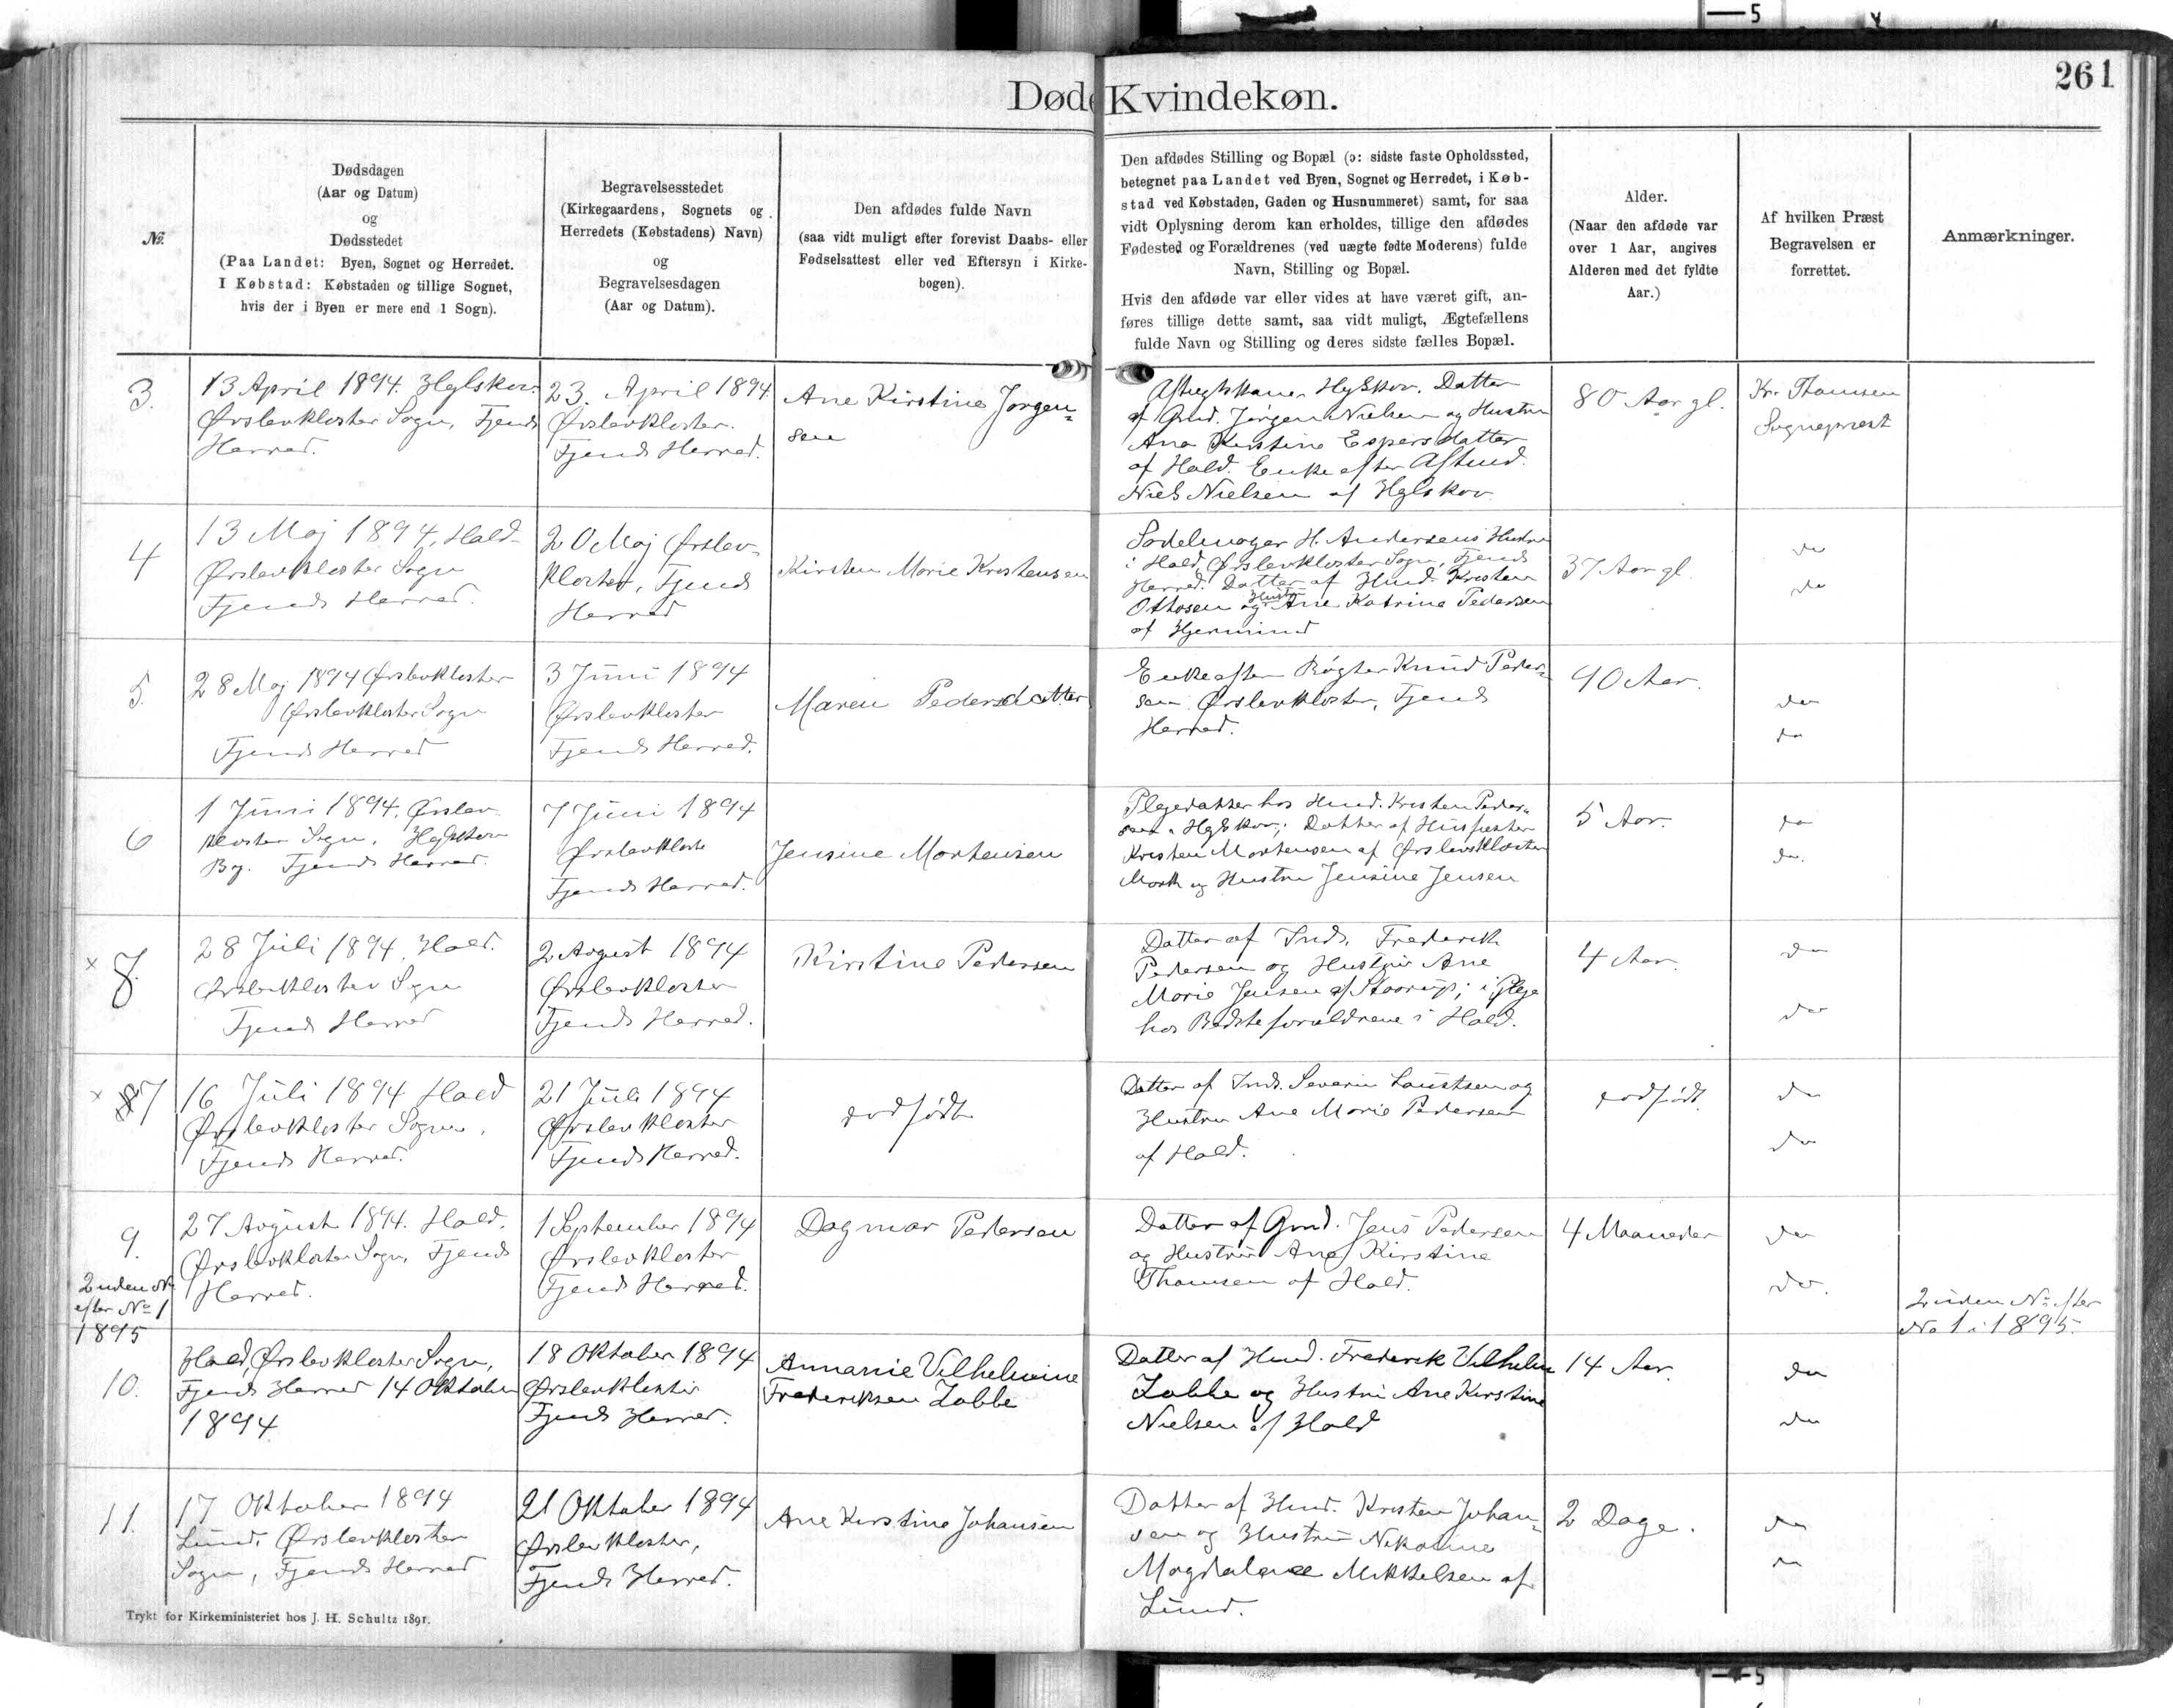 5
261
Døde Kvindekøn.
№
Dødsdagen
(Aar og Datum)
og
Dødsstedet
(Paa Landet: Byen, Sognet og Herredet.
I Købstad: Købstaden og tillige Sognet,
hvis der i Byen er mere end 1 Sogn).
Begravelsesstedet
(Kirkegaardens, Sognets og
Herredets (Købstadens) Navn)
og
Begravelsesdagen
(Aar og Datum).
Den afdødes fulde Navn
(saa vidt muligt efter forevist Daabs- eller
Fødselsattest eller ved Eftersyn i Kirke-
bogen).
Den afdødes Stilling og Bopæl (ɔ: sidste faste Opholdssted,
betegnet paa Landet ved Byen, Sognet og Herredet, i Køb-
stad ved Købstaden, Gaden og Husnummeret) samt, for saa
vidt Oplysning derom kan erholdes, tillige den afdødes
Fødested og Forældrenes (ved uægte fødte Moderens) fulde
Navn, Stilling og Bopæl.
Hvis den afdøde var eller vides at have været gift, an-
føres tillige dette samt, saa vidt muligt, Ægtefællens
fulde Navn og Stilling og deres sidste fælles Bopæl.
Alder.
(Naar den afdøde var
over 1 Aar, angives
Alderen med det fyldte
Aar.)
Af hvilken Præst
Begravelsen er
forrettet.
Anmærkninger.
3.
13 April 1894. Hglskov
Ørslevkloster Sogn, Fjends
Herred.
23. April 1894.
Ørslevkloster.
Fjends Herred.
Ane Kirstine Jørgen=
sen
Aftægtskone, Hglskov. Datter
af Gmd. Jørgen Nielsen og Hustru
Ane Kirstine Espersdatter
af Hald. Enke efter Aftmd.
Niels Nielsen af Hglskov
80 Aar gl.
Kr. Thomsen
Sognepræst
4
13 Maj 1894, Hald
Ørslevkloster Sogn
Fjends Herred.
20 Maj Ørslev-
kloster, Fjends
Herred
Kirsten Marie Kristensen
Sadelmager H. Andersens Hustru
i Hald, Ørslevkloster Sogn, Fjends
Herred. Datter af Hmd. Kristen
Ottosen og Hustru Ane Katrine Pedersen
af Hjermind
37 Aar gl.
do
do
5.
28 Maj 1894 Ørslevkloster
Ørslevkloster Sogn
Fjends Herred
3 Juni 1894
Ørslevkloster
Fjends Herred.
Maren Pedersdatter
Enke efter Røgter Knud Peder=
sen Ørslevkloster, Fjends
Herred.
90 Aar.
do
do
6
1 Juni 1894. Ørslev
kloster Sogn, Hglskov
By. Fjends Herred.
7 Juni 1894
Ørslevkloster
Fjends Herred.
Jensine Mortensen
Plejedatter hos Hmd. Kristen Peder=
sen i Hglskov; Datter af Husfæster
Kristen Mortensen af Ørslevkloster
Mark og Hustru Jensine Jensen
5 Aar.
do
do.
× 8.
28 Juli 1894, Hald.
Ørslevkloster Sogn
Fjends Herred
2 August 1894
Ørslevkloster
Fjends Herred.
Kirstine Pedersen
Datter af Inds. Frederik
Pedersen og Hustru Ane
Marie Jensen af Staarup; i Pleje
hos Bedsteforældrene i Hald.
4 Aar.
do
do
× 7
16 Juli 1894 Hald
Ørslevkloster Sogn,
Fjends Herred.
21 Juli 1894
Ørslevkloster
Fjends Herred.
dødfødt
Datter af Inds. Severin Laustsen og
Hustru Ane Marie Pedersen
af Hald.
dødfødt.
do
do
9.
27 August 1894. Hald.
Ørslevkloster Sogn, Fjends
Herred.
1 September 1894
Ørslevkloster
Fjends Herred.
Dagmar Pedersen
Datter af Gmd. Jens Pedersen
og Hustru Ane Kirstine
Thomsen af Hald.
4 Maaneder
do
do.
2 uden Nr
efter No 1
1895
2 uden Nr. efter
No 1 i 1895.
10.
Hald, Ørslevkloster Sogn,
Fjends Herred 14 Oktober
1894
18 Oktober 1894
Ørslevkloster
Fjends Herred.
Annanie Vilhelmine
Frederiksen Labbe
Datter af Hmd. Frederik Vilhelm
Labbe og Hustru Ane Kirstine
Nielsen af Hald
14 Aar.
do
do
11.
17 Oktober 1894
Lund. Ørslevkloster
Sogn, Fjends Herred
21 Oktober 1894
Ørslevkloster,
Fjends Herred.
Ane Kirstine Johansen
Datter af Hmd. Kristen Johan=
sen og Hustru Nikoline
Magdalene Mikkelsen af
Lund.
2 Dage.
do
do
Trykt for Kirkeministeriet hos J. H. Schultz 1891.
5